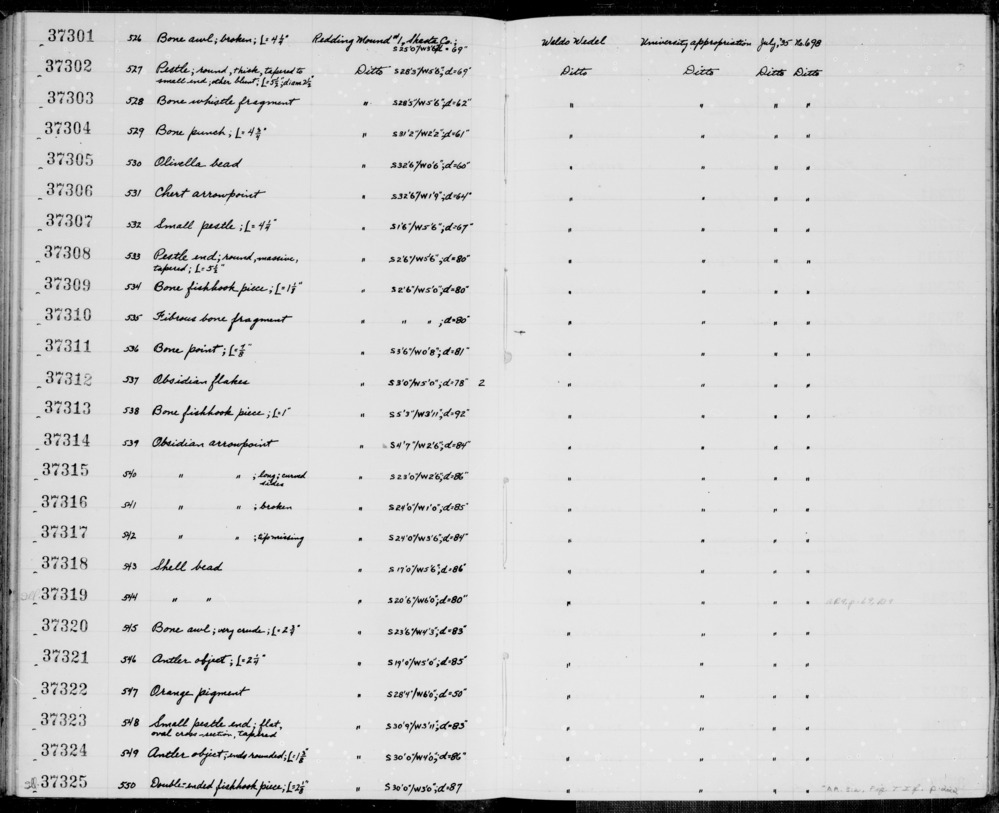 37301 526 Bone awl; broken; L= 4¼" Redding Mound #1, Shasta Co.; Waldo Wedel University appropriation July, '35 No 698
37302 527 Pestle; round, thick, tapered to Ditto S28'3"/W5'6"; d=69" Ditto Ditto Ditto Ditto
small end, other blunt;
37303 528 Bone whistle fragment " S28'5"/W5'6"; d=62" " " " "
37304 529 Bone punch; L= 4¾" " S31'2"/W2'2"; d=61" " " " "
37305 530 Olivella bead " S32'6"/W0'6"; d=60" " " " "
37306 531 Chert arrowpoint " S32'6"/W1'9"; d=64" " " " "
37307 532 Small pestle; L= 4¼" " S1'6"/W5'6"; d=67" " " " "
37308 533 Pestle end; round, massive, " S2'6"/W5'6"; d=80" " " " "
tapered; L= 5½"
37309 534 Bone fishhook piece; " S2'6"/W5'0"; d=80" " " " "
37310 535 Fibrous bone fragment " " " ; d=80" " " " "
37311 536 Bone point; L= ⅞" " S3'6"/W0'8"; d=81" " " " "
37312 537 Obsidian flakes " S3'0"/W5'0"; d=78" 2 " " " "
37313 538 Bone fishhook piece; L= 1" " S5'3"/W3'11"; d=92" " " " "
37314 539 Obsidian arrowpoint " S4'7"/W2'6"; d=84" " " " "
37315 540 " " ; long; curved " S23'0"/W2'6"; d=86" " " " "
sides
37316 541 " " ; broken " S24'0"/W1'0"; d=85" " " " "
37317 542 " " ; tip missing " S24'0"/W3'6"; d=84" " " " "
37318 543 Shell bead " S17'0"/W5'6"; d=86" " " " "
37319 544 " " " S20'6"/W6'0"; d=80" " " " "
37320 545 Bone awl; very crude; L= 2¾" " S23'6"/W4'3"; d=83" " " " "
37321 546 Antler object; L= 2¼" " S19'0"/W5'0"; d=85" " " " "
37322 547 Orange pigment " S28'4"/W6'0"; d=50" " " " "
37323 548 Small pestle end; flat, " S30'9"/W3'11"; d=83" " " " "
oval cross-section, tapered
37324 549 Antler object; ends rounded; " S30'0"/W4'0"; d=86" " " " "
37325 550 Double-ended fishhook piece; " S30'0"/W3'0"; d=87 " " " "